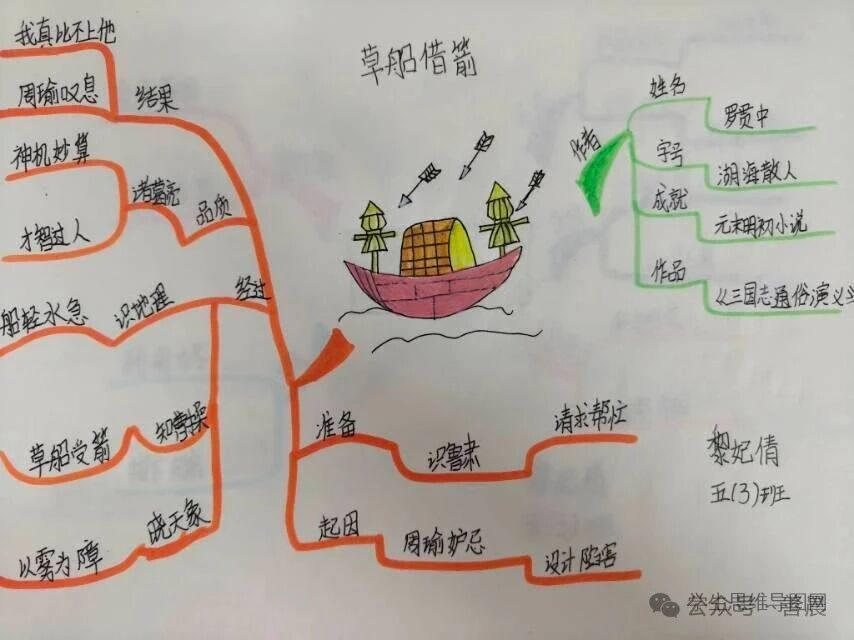 草船借箭
我真比不上他
周瑜叹息
结果
神机妙算
才智过人
诸葛亮
品质
船轻水急
识地理
经过
草船受箭
知曹操
以雾为障
晓天象
准备
识鲁肃
请求帮忙
起因
周瑜妒忌
设计陷害
作者
姓名
罗贯中
字号
湖海散人
成就
元末明初小说
作品
《三国志通俗演义》
黎妃倩
五(3)班